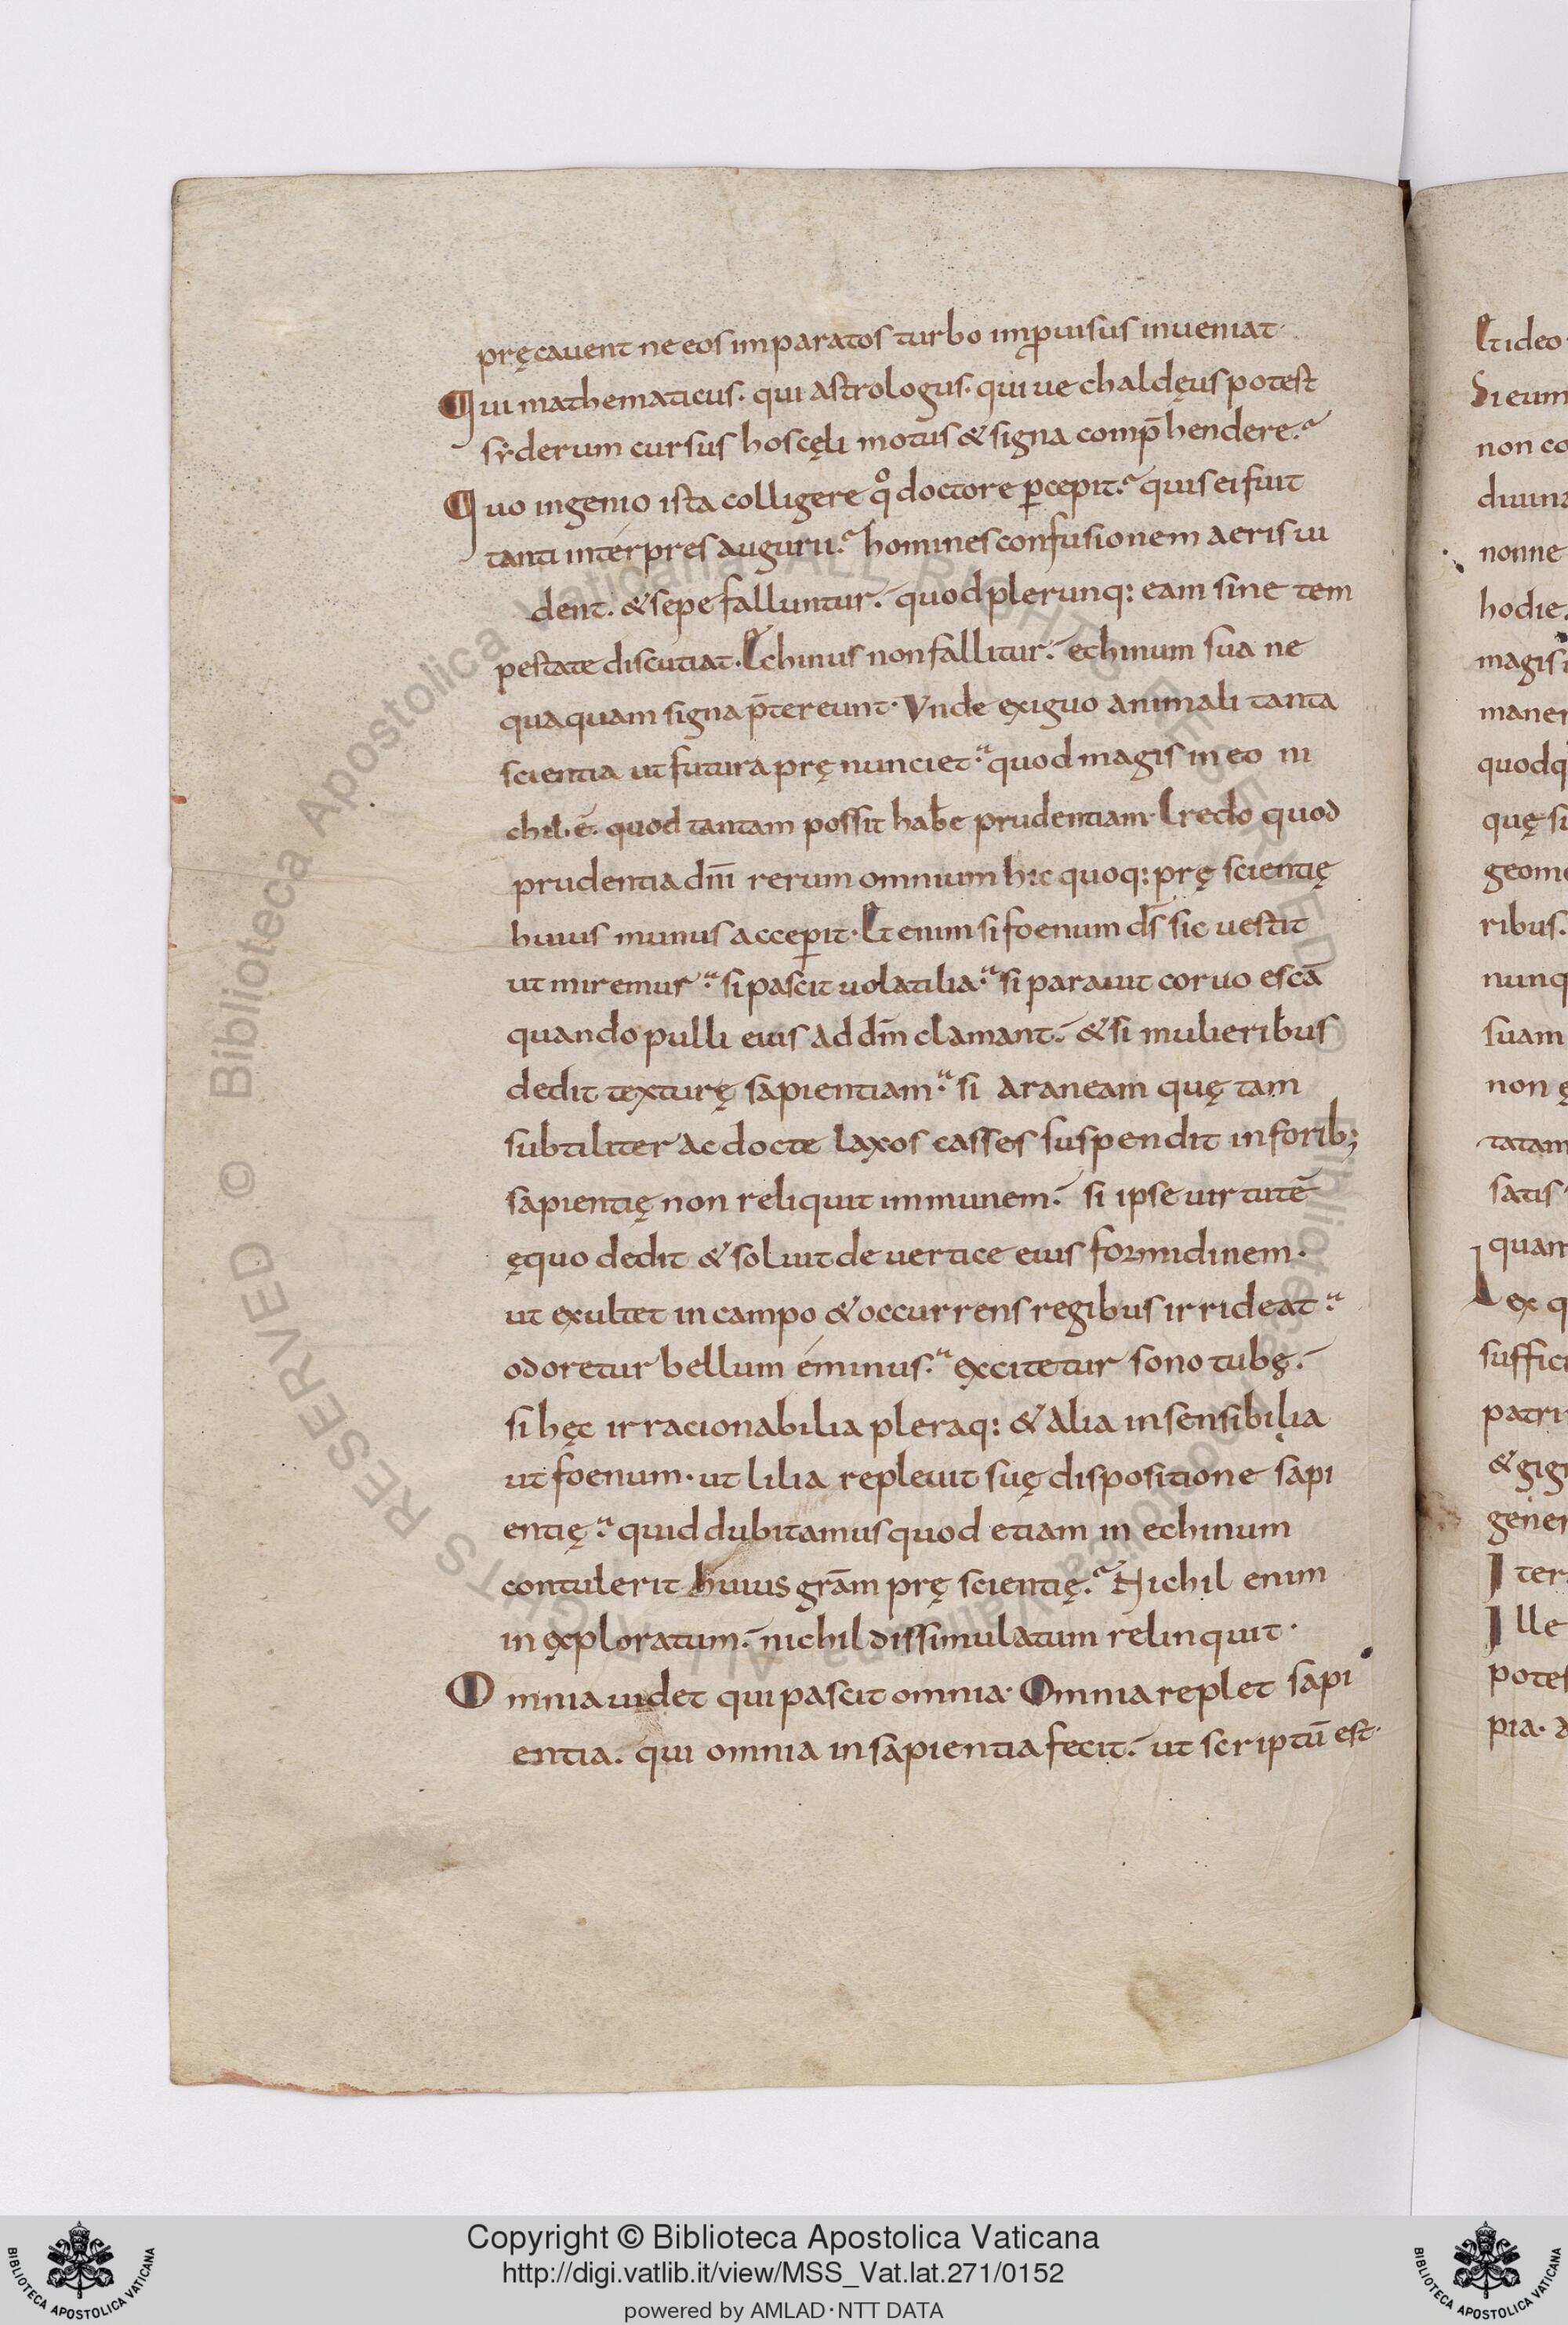 pręcauent ne eos imparatos turbo imꝓuisus inueniat·
Qui mathematicus· qui astrologus· qui ue chaldęus potest
syderum cursus hoscęli motus & signa comp̄hendere.
Quo ingenio ista colligere qͦ doctore ꝑcepit. quis ei fuit
tanti interpres augurii. homines confusionem aeris ui
dent. & sepe falluntur. quod plerunq: eam sine tem
pestate discutiat. Echinus non fallitur. echinum sua ne
quaquam signa p̄tereunt· Vnde exiguo animali tanta
scientia ut futura prę nunciet. quod magis in eo ni
chil. ē. quod tantam possit hab̄e prudentiam· Credo quod
prudentia dn̄i rerum omnium hic quoq: prę scientię
huius munus acceꝑit· Et enim si foenum d̄s sic uestit
ut miremur. si pascit uolatilia. si parauit coruo escā
quando pulli eius ad dn̄m clamant. & si mulierib̄us
dedit texturę sapientiam. si araneam quę tam
subtiliter ac docte laxos casses suspendit in forib;
sapientię non reliquit immunem. si ipse uirtutē
ęquo dedit & soluit de uertice eius formidinem·
ut exultet in campo & occurrens regibus irrideat.
odoretur bellum éminus. excitetur sono tubę.
si hęc irracionabilia pleraq: & alia insensibilia
ut foenum· ut lilia repleuit suę dispositione sapi
entię. quid dubitamus quod etiam in echinum
contulerit huius grām prę scientię. Nichil enim
in exploratum. nichil dissimulatum relinquit·
Omnia uidet qui pascit omnia· Omnia replet sapi
entia. qui omnia in sapientia fecit. ut scriptū est·
Et ideo
Si eum
non co
diuina
nonne
hodie.
magis
maner
quodq
quę si
geome
ribus.
nunq
suam
non ę
tatam
satis
quam
Lex q
suffici
patri
& gig
gener
Iter
Ille
potes
pia. a
© Biblioteca Apostolica Vaticana ALL RIGHTS RESERVED © Biblioteca Apostolica Vaticana ALL RIGHTS RESERVED
Copyright © Biblioteca Apostolica Vaticana
http://digi.vatlib.it/view/MSS_Vat.lat.271/0152
powered by AMLAD·NTT DATA
BIBLIOTECA APOSTOLICA VATICANA
BIBLIOTECA APOSTOLICA VATICANA